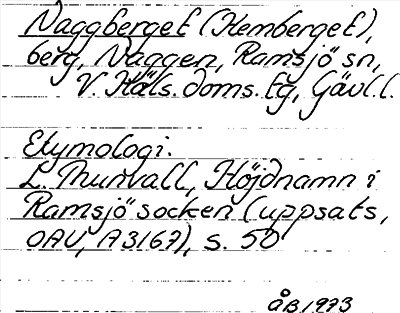 Naggberget (Hemberget),
berg, Naggen, Ramsjö sn,
V. Häls. doms. tg, Gävl.l.
Etymologi.
L. Thunvall, Höjdnamn i
Ramsjö socken (uppsats,
OAU, A3167), s. 50
ÅB 1973